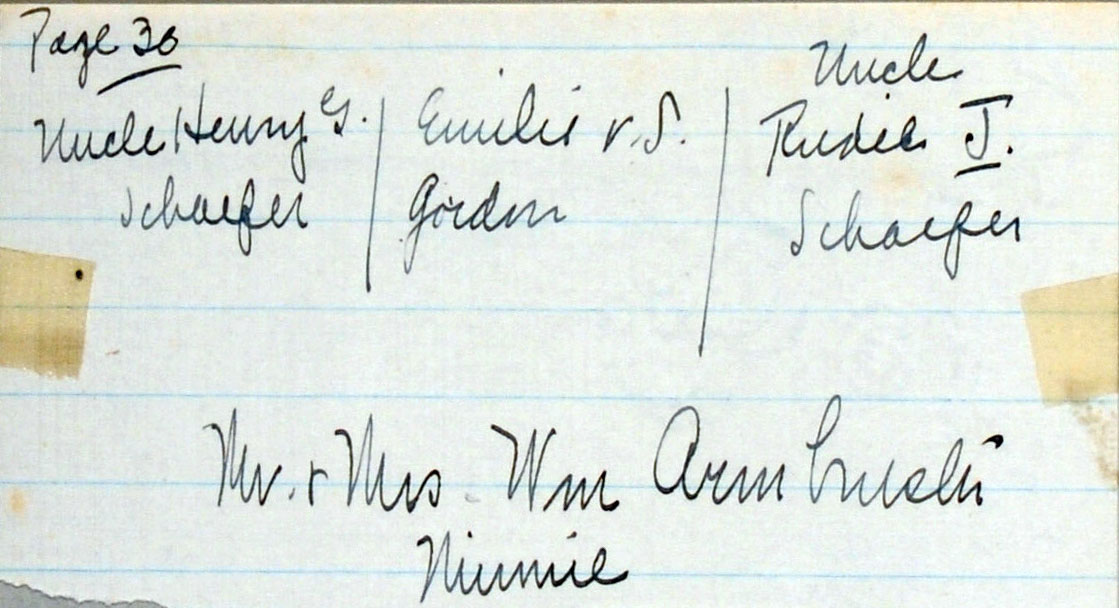 Page 30
Uncle Henry G. Schaefer
Emilie v. S. Gordon
Uncle
J.
Schaefer
Mr. & Mrs. Wm
Minnie